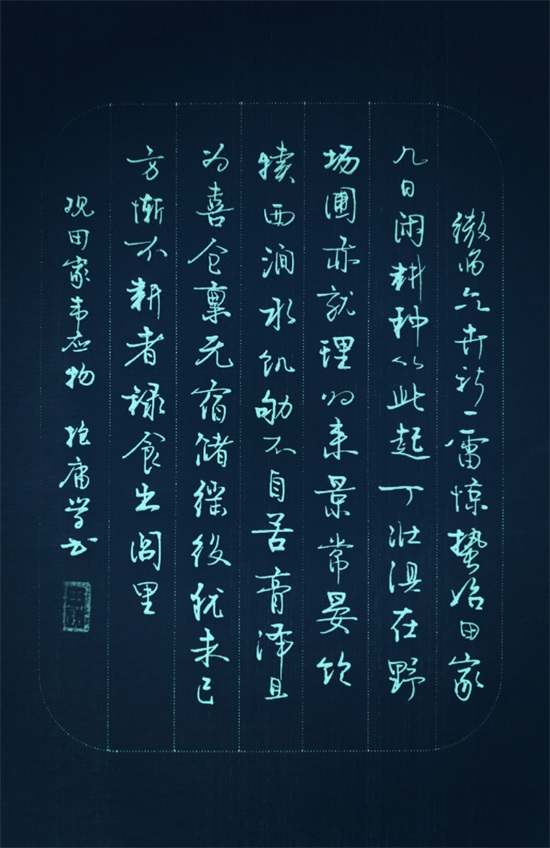 微雨众卉新一雷惊蛰始田家
几日闲耕种从此起丁壮俱在野
场圃亦就理归来景常晏饮
犊西涧水饥劬不自苦膏泽且
为喜仓禀无宿储徭役犹未已
方惭不耕者禄食出闾里
观田家韦应物 抱庸学书